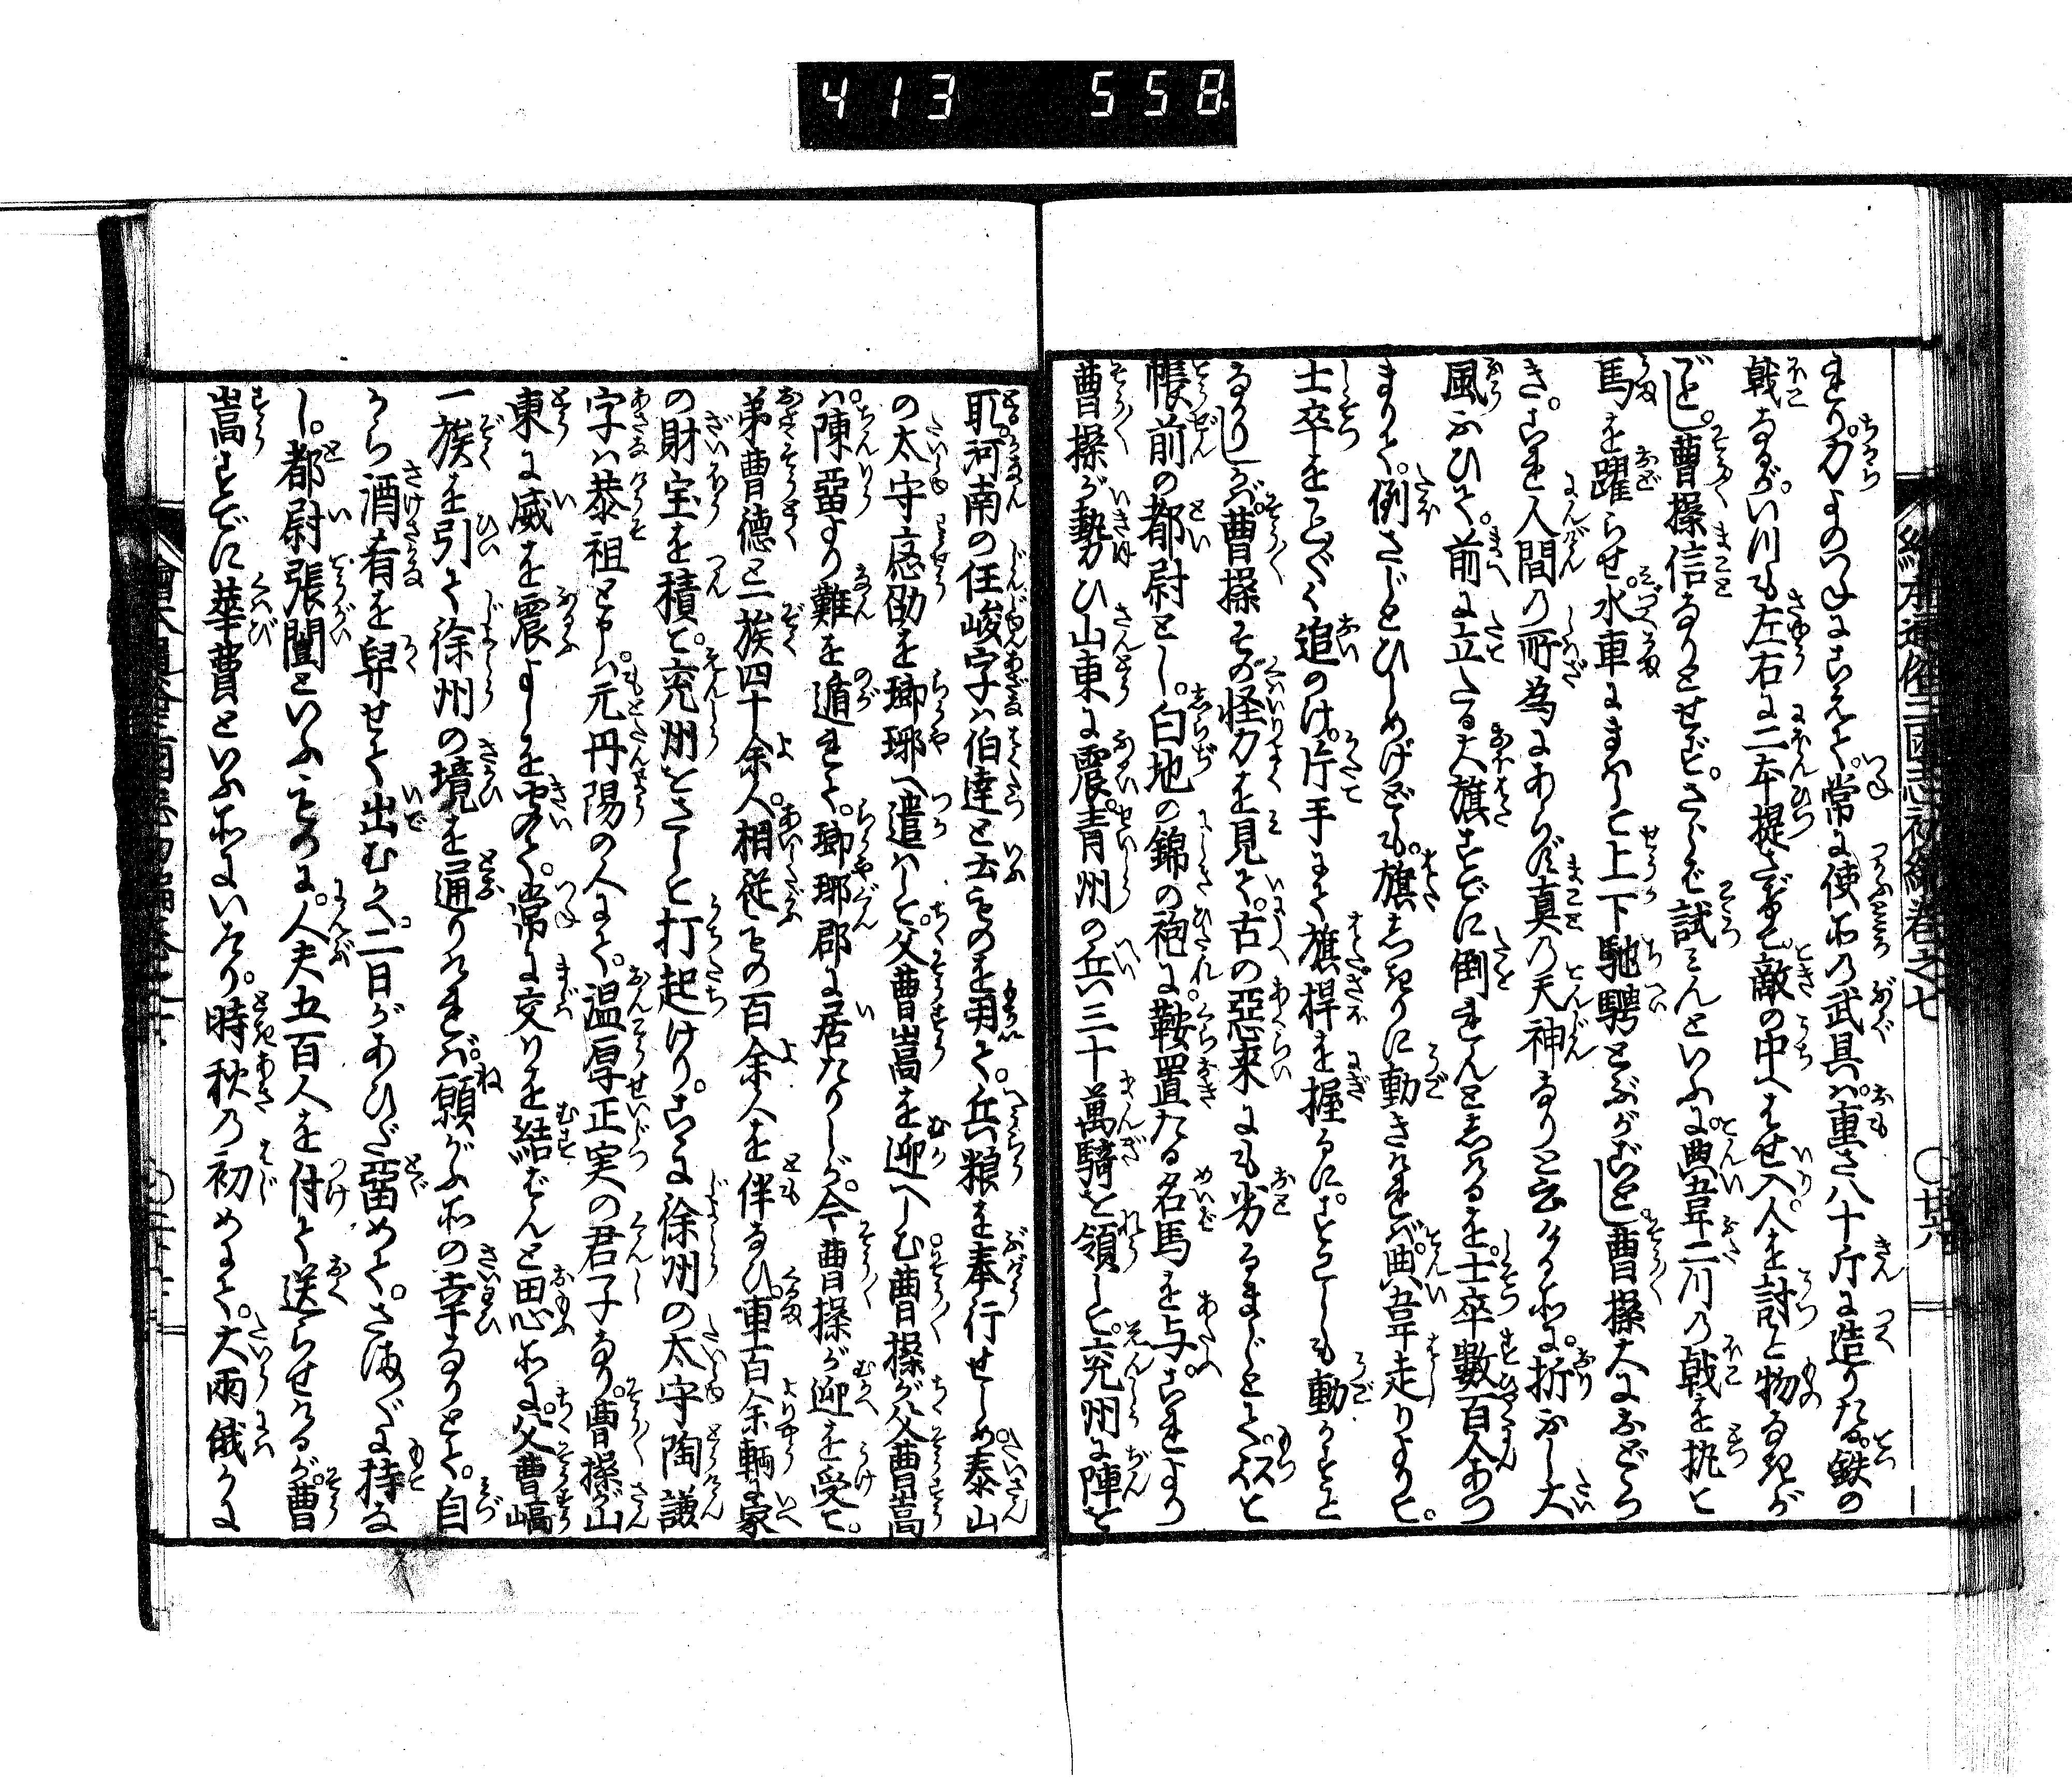 413 558
繪本通俗三國志初編卷之七 〇廿六
れり力よのつねにこえて。常に使ふ所の武具は。重さ八十斤に造りたる。鉄の
戟なるが。いつも左右に二本提さげて。敵の中へはせ入。人を討こと物なきが
ごとし。曹操信なりとせず。さらば試みんといふに。典韋二つの戟を執て
馬を躍らせ。水車にまはして上下馳騁とぶがごとし曹操大におどろ
き。これ人間の所為にあらず。真の天神なりと云ける所に。折ふし大
風ふひて。前に立たる大旗すでに倒れんとしけるを。士卒數百人あつ
まりて。倒さじとひしめけども。旗しきりに動きければ。典韋走りよりて。
士卒をことごとく追のけ。片手にて旗桿を握るに。すこしも動かずと
なりしかば。曹操その怪力を見て。古の惡来にも劣るまじとて。
帳前の都尉とし。白地の錦の袍に。鞍置たる名馬を与。これより
曹操が勢ひ山東に震。青州の兵三十萬騎を領して。兗州に陣を
取。河南の任峻字は伯達と云ものを用て。兵粮を奉行せしめ。泰山
の太守應劭を瑯琊へ遣はして。父曹嵩を迎へしむ。曹操が父曹嵩
は。陳畱より難を遁れて。瑯琊郡に居たりしが。今曹操が迎を受て。
弟曹德と一族四十余人。相従もの百余人を伴なひ。車百余輌に家
の財宝を積て。兗州をさして打起けり。こゝに徐州の太守陶謙
字は恭祖と申は。元丹陽の人にて。温厚正実の君子なり。曹操が山
東に威を震よしを聞て。常に交りを結ばんと思ふ所に。父曹嵩
一族を引て徐州の境を通りければ。願がふ所の幸なりとて。自
から酒肴を舁せて出むかへ。二日があひだ畱めて。さまざまに持な
し。都尉張闓といふものに。人夫五百人を付て送らせけるが。曹
嵩すでに華費といふ所にいたり。時秋の初めにて。大雨俄かに